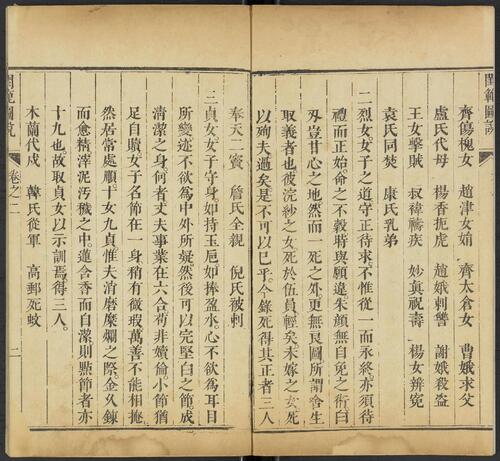 閨範圖說
齊傷槐女 趙津女娟 齊太倉女 曹娥求父
盧氏代母 楊香扼虎 趙娥刺讐 謝娥殺盜
王女擊賊 叔禕禱疾 妙眞祝壽 楊女辨寃
袁氏同焚 康氏乳弟
二烈女女子之道守正待求不惟從一而永終亦須待
禮而正始命之不穀時與願違朱顏無自免之術白
刃豈甘心之地然而一死之外更無良圖所謂舍生
取義者也彼浣紗之女死於伍員輕矣未嫁之女死
以殉夫過矣是不可以已乎今錄死得其正者三人
奉天二竇 詹氏全親 倪氏被刺
三貞女女子守身如持玉巵如捧盈水心不欲爲耳目
所變迹不欲爲中外所疑然後可以完堅白之節成
清潔之身何者丈夫事業在六合苟非嬻倫小節猶
足自贖女子名節在一身稍有微瑕萬善不能相掩
然居常處順十女九貞惟夫消磨糜爛之際金久鍊
而愈精滓泥汚穢之中蓮含香而自潔則點節者亦
十九也故取貞女以示訓焉得三人
木蘭代戍 韓氏從軍 高郵死蚊
閨範圖說
卷之二
二